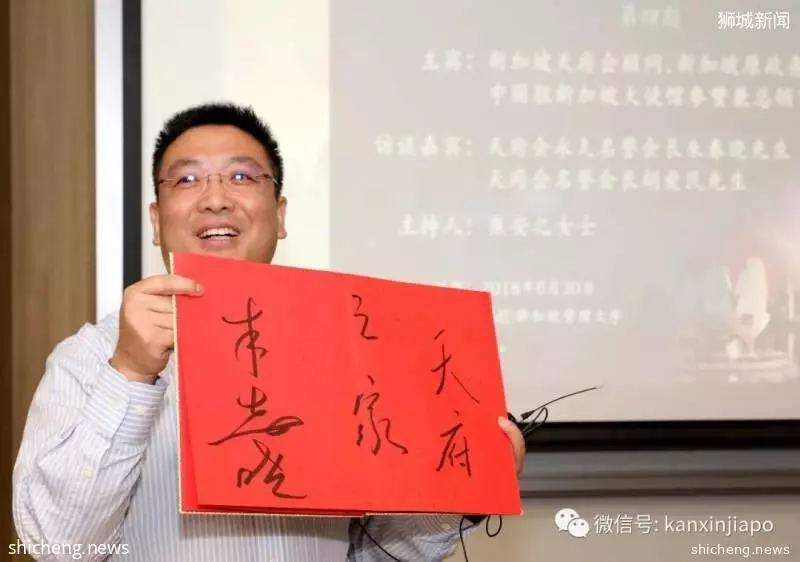 狮城新闻
第四期
主宾：新加坡天府会顾问、新加坡原政务
中国驻新加坡大使馆参赞兼总领
访谈嘉宾：天府会永久名誉会长
先生
天府会名誉会长胡爱民先生
主持人：
安之女士
2018年6月30日
新加坡管理大学
天府
之家
微信号: kanxinjiapo
shicheng.news
shicheng.news